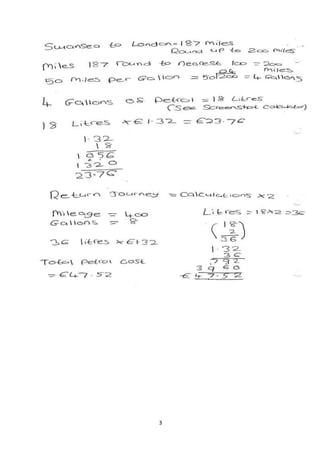 Swansea to London = 187 miles
Round up to 200 miles
Miles 187 round to nearest 100 = 200 miles
50 miles per Gallon = 50)200 = 4 Gallons
4 Gallons of Petrol = 18 Litres
(See Screenshot Calculator)
18 Litres × £1.32 = £23.76
1.32
18
1056
1320
23.76
Return Journey = Calculations ×2
Mileage = 400
Gallons = 8
Litres = 18×2=36
(18
2
36)
36 litres × £1.32
1.32
36
792
3960
£47.52
Total Petrol Cost
= £47.52
3